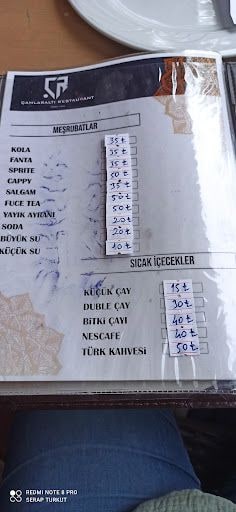 ÇAMLARALTI RESTAURANT
MEŞRUBATLAR
KOLA 35 ₺
FANTA 35 ₺
SPRITE 35 ₺
CAPPY 50 ₺
SALGAM 35 ₺
FUCE TEA 50 ₺
YAYIK AYRANI 50 ₺
SODA 20 ₺
BÜYÜK SU 20 ₺
KÜÇÜK SU 10 ₺
SICAK İÇECEKLER
KÜÇÜK ÇAY 15 ₺
DUBLE ÇAY 30 ₺
BİTKİ ÇAYI 40 ₺
NESCAFE 40 ₺
TÜRK KAHVESİ 50 ₺
REDMI NOTE 8 PRO
SERAP TURKUT